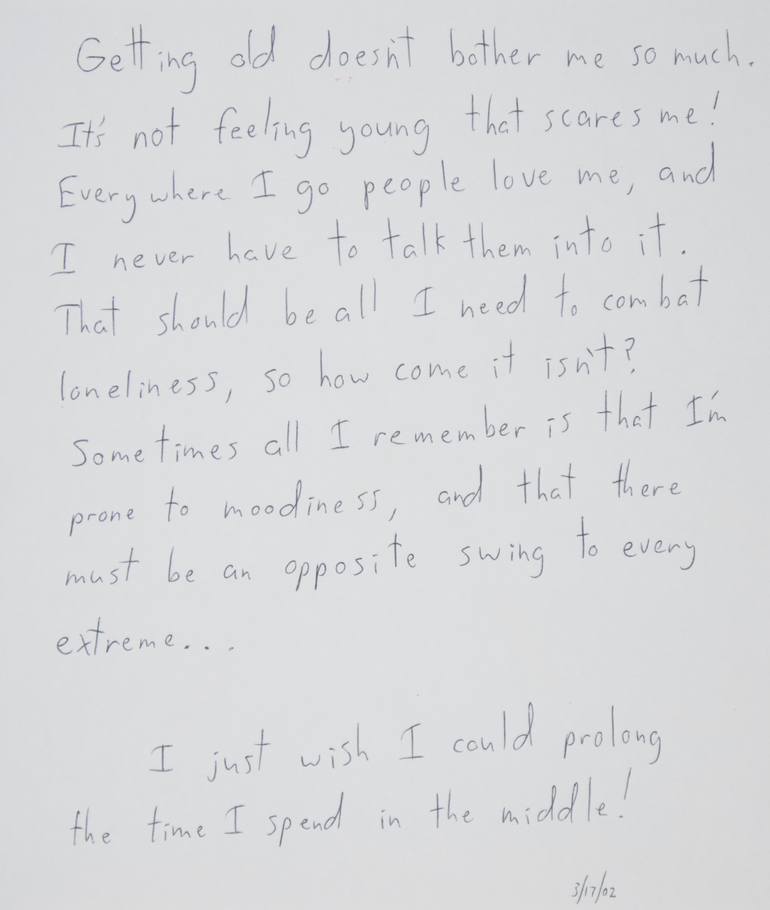 Getting old doesn't bother me so much.
It's not feeling young that scares me!
Everywhere I go people love me, and
I never have to talk them into it.
That should be all I need to combat
loneliness, so how come it isn't?
Sometimes all I remember is that I'm
prone to moodiness, and that there
must be an opposite swing to every
extreme...
I just wish I could prolong
the time I spend in the middle!
3/17/02